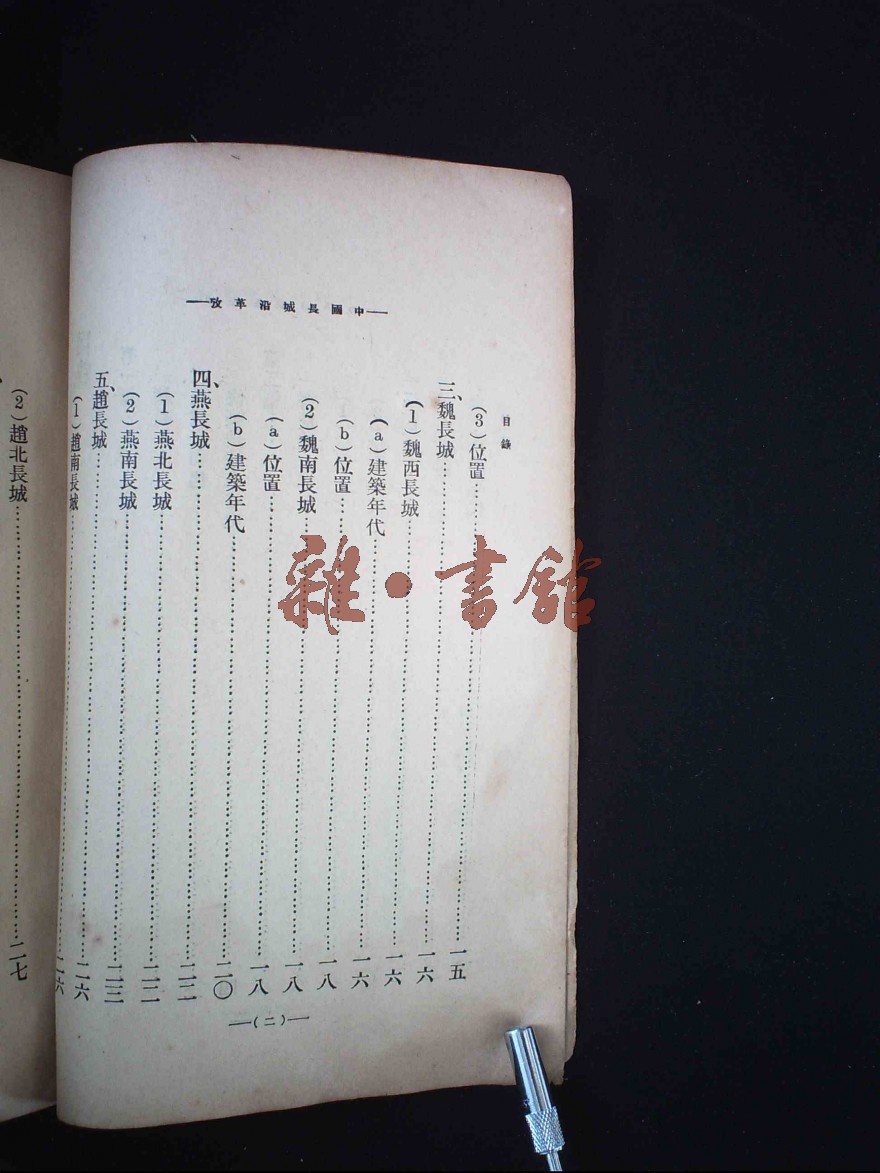 —中國長城沿革攷—
目錄
(3)位置……一五
三、魏長城……一六
(1)魏西長城……一六
(a)建築年代……一六
(b)位置……一八
(2)魏南長城……一八
(a)位置……一八
(b)建築年代……二〇
四、燕長城……二二
(1)燕北長城……二二
(2)燕南長城……二三
五、趙長城……二六
(1)趙南長城……二六
—(二)—
(2)趙北長城……二七
雜·書館